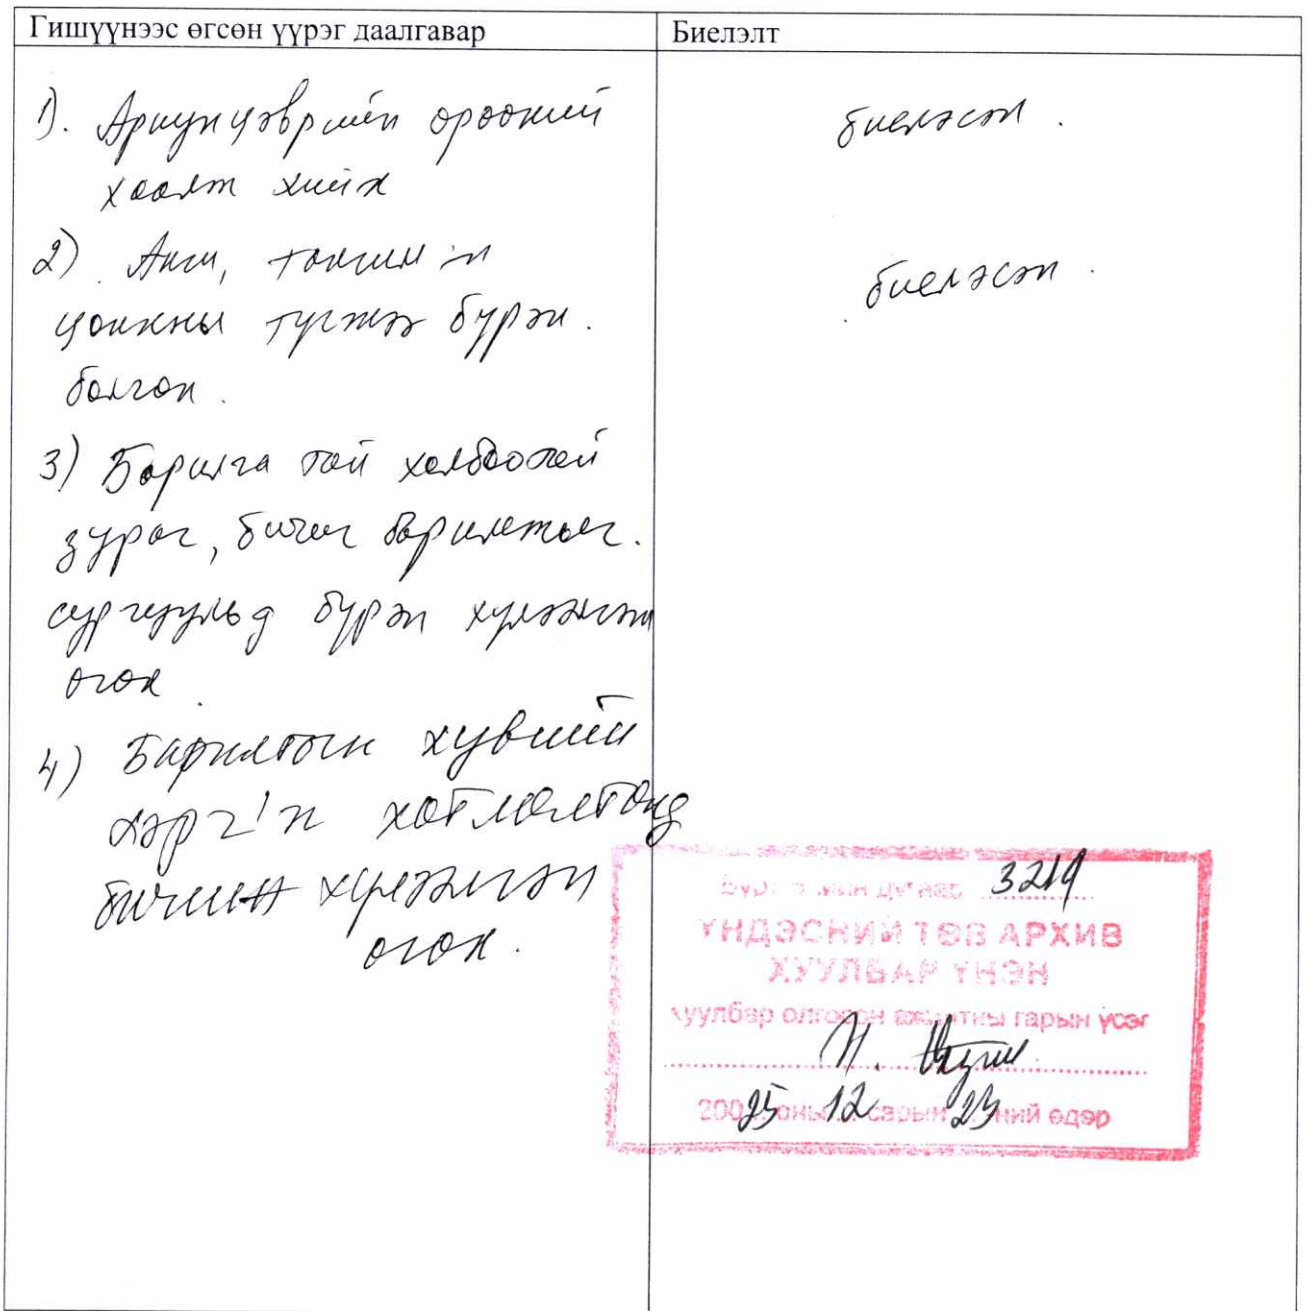 Гишүүнээс өгсөн үүрэг даалгавар
Биелэлт
1). Ариун цэврийн өрөөний
хаалт хийх
биелэсэн.
2). Анги, танхим'н
цонхны түгжээ бүрэн.
болгох.
биелэсэн.
3) Барилга тай холбоотой
зураг, бичиг баримтыг.
сургуульд бүрэн хүлээлгэн
өгөх.
4) Барилгын хувийн
хэрг'н хотлолтонд
бичин хүлээлгэн
өгөх.
дугаар 3219
ҮНДЭСНИЙ ТӨВ АРХИВ
ХУУЛБАР ҮНЭН
хуулбар олгосон ажилтны гарын үсэг
200 25 оны 12 сарын 23 ний өдөр